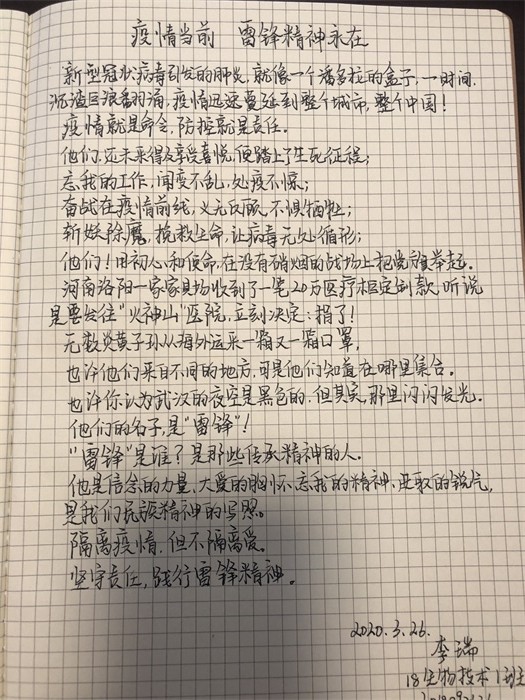 疫情当前 雷锋精神永在
新型冠状病毒引发的肺炎,就像一个潘多拉的盒子,一时间,
沉渣巨浪翻涌,疫情迅速蔓延到整个城市,整个中国!
疫情就是命令,防控就是责任。
他们,还未来得及享受喜悦,便踏上了生死征程;
忘我的工作,闻变不乱,处疫不惊;
奋战在疫情前线,义无反顾,不惧牺牲;
斩妖除魔,挽救生命,让病毒无处循形;
他们!用初心和使命,在没有硝烟的战场上把党旗举起。
河南洛阳一家家具场收到了一笔20万医疗柜定制款,听说
是要发往“火神山”医院,立刻决定:捐了!
无数炎黄子孙从海外运来一箱又一箱口罩,
也许他们来自不同的地方,可是他们知道在哪里集合。
也许你认为武汉的夜空是黑色的,但其实,那里闪闪发光。
他们的名字,是“雷锋”!
“雷锋”是谁?是那些传承精神的人。
他是信念的力量、大爱的胸怀、忘我的精神、进取的锐气,
是我们民族精神的写照。
隔离疫情,但不隔离爱。
坚守责任,践行雷锋精神。
2020.3.26.
李瑞
18生物技术1班